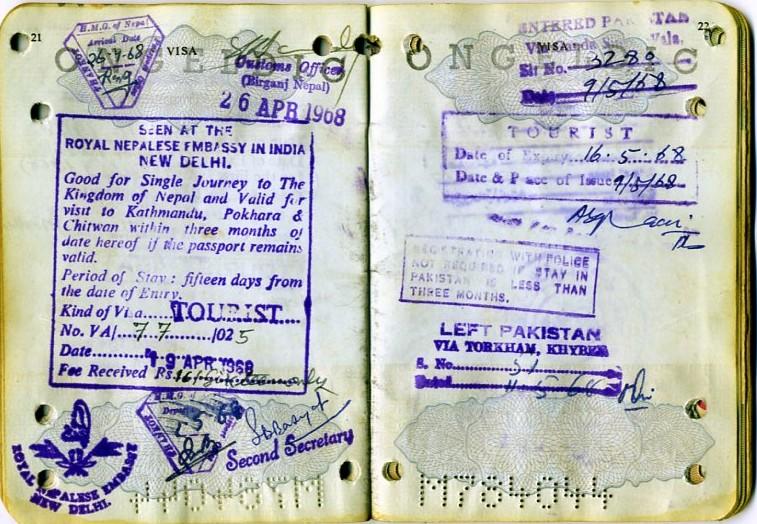 21
VISA
H.M.G. of Nepal
Arrival Date
26-4-68
Customs Officer
(Birganj Nepal)
26 APR 1968
SEEN AT THE
ROYAL NEPALESE EMBASSY IN INDIA
NEW DELHI.
Good for Single Journey to The
Kingdom of Nepal and Valid for
visit to Kathmandu, Pokhara &
Chitwan within three months of
date hereof if the passport remains
valid.
Period of Stay: fifteen days from
the date of Entry.
Kind of Visa......TOURIST....
No. VA/......77........./025
Date..........19 APR 1968
Fee Received Rs. 16/- only
H.M.G.
Second Secretary
ROYAL NEPALESE EMBASSY
NEW DELHI.
22
VISA
ENTERED PAKISTAN
Sr. No. 3280
Date 9/5/68
TOURIST
Date of Expiry...16.5.68
Date & Place of Issue 9/5/68
REGISTRATION WITH POLICE
NOT REQUIRED IF STAY IN
PAKISTAN IS LESS THAN
THREE MONTHS.
LEFT PAKISTAN
VIA TORKHAM, KHYBER
S. No.
Dated 11-5-68